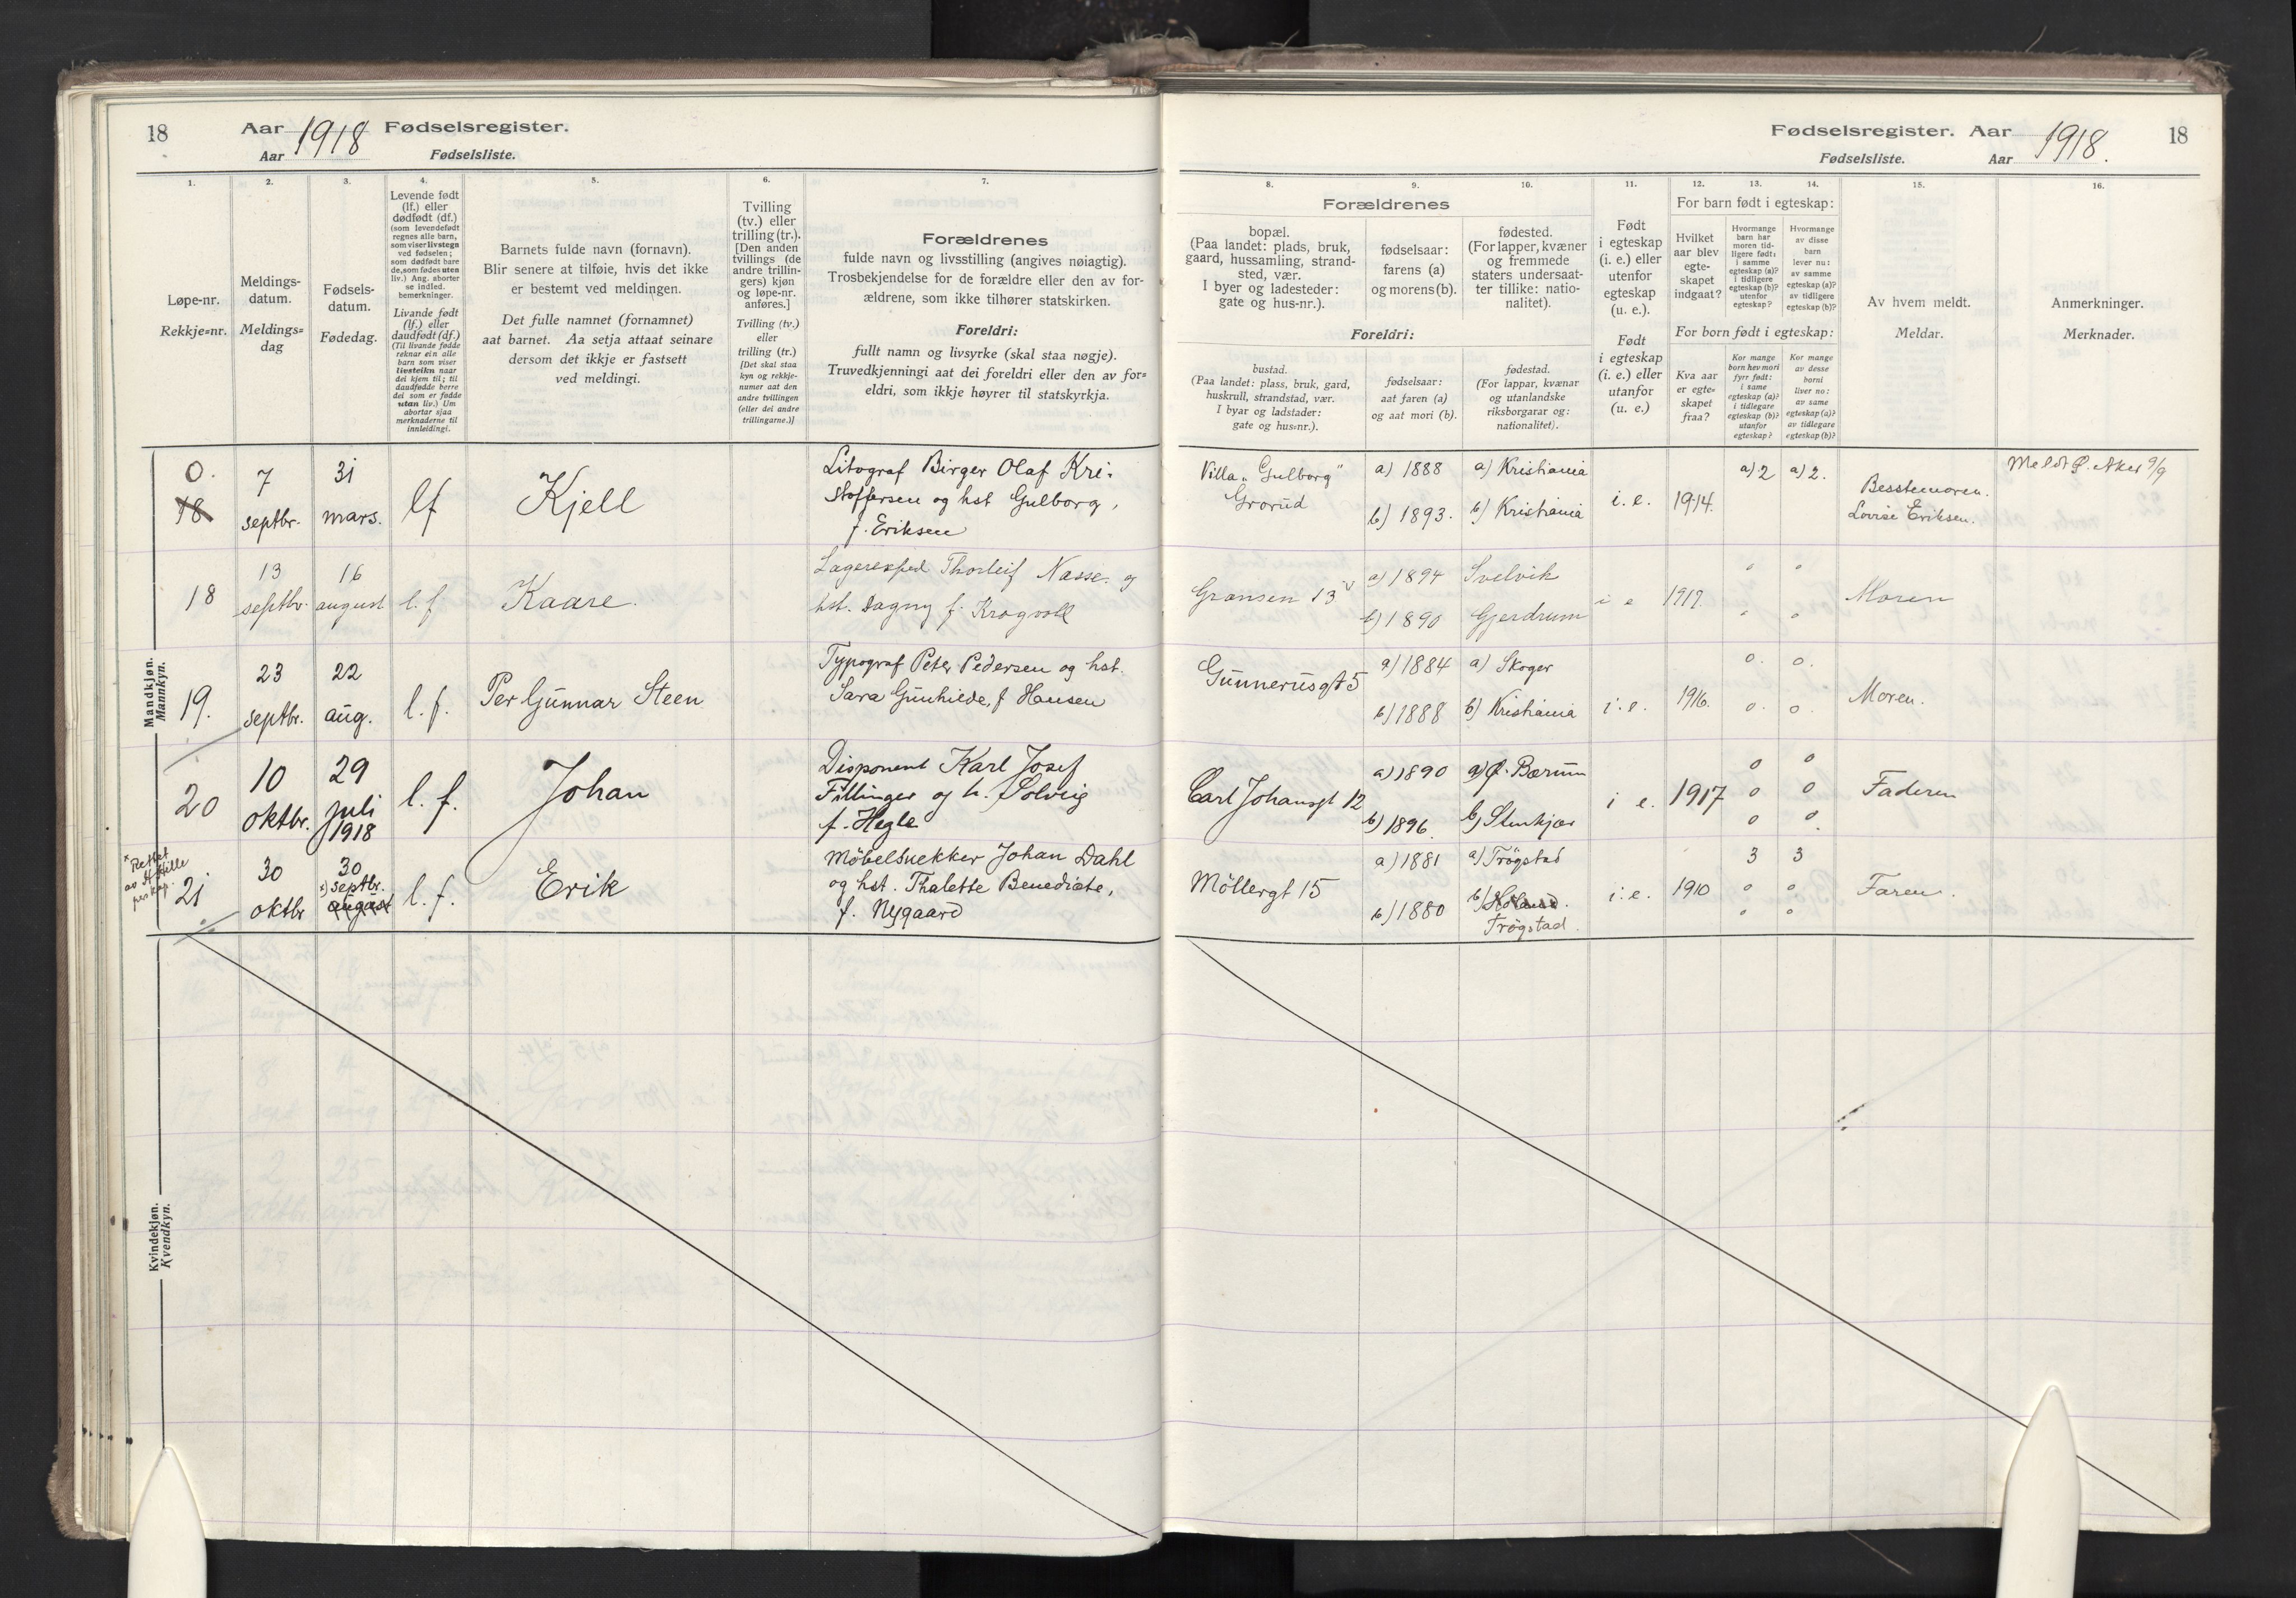 18
Aar 1918 Fødselsregister.
Aar Fødselsliste.
1.
2.
3.
4.
5.
6.
7.
Løpe-nr.
Rekkje=nr.
Meldings-
datum.
Meldings=
dag
Fødsels-
datum.
Fødedag.
Levende født
(lf.) eller
dødfødt (df.)
(som levendefødt
regnes alle barn,
som viser livstegn
ved fødselen;
som dødfødt bare
de, som fødes uten
liv.) Ang. aborter
se indled.
bemerkninger.
Livande født
(lf.) eller
daudfødt (df.)
(Til livande fødde
reknar ein alle
barn som viser
livsteikn naar
dei kjem til; til
daudfødde berre
dei som er fødde
utan liv.) Um
abortar sjaa
merknaderne til
innleidingi.
Barnets fulde navn (fornavn).
Blir senere at tilføie, hvis det ikke
er bestemt ved meldingen.
Det fulle namnet (fornamnet)
aat barnet. Aa setja attaat seinare
dersom det ikkje er fastsett
ved meldingi.
Tvilling
(tv.) eller
trilling (tr.).
[Den anden
tvillings (de
andre trillin-
gers) kjøn
og løpe-nr.
anføres.]
Tvilling (tv.)
eller
trilling (tr.)
[Det skal staa
kyn og rekkje-
numer aat den
andre tvillingen
(eller dei andre
trillingarne.)]
Forældrenes
fulde navn og livsstilling (angives nøiagtig).
Trosbekjendelse for de forældre eller den av for-
ældrene, som ikke tilhører statskirken.
Foreldri:
fullt namn og livsyrke (skal staa nøgje).
Truvedkjenningi aat dei foreldri eller den av for=
eldri, som ikkje høyrer til statskyrkja.
Mandkjøn.
Mannkyn.
0.
18
7
septbr.
31
mars.
lf
Kjell
Litograf Birger Olaf Kri-
stoffersen og hst Gulborg,
f. Eriksen
18
13
septbr.
16
august
l. f
Kaare.
Lagereksped Thorleif Næsse. og
hst. Dagny f. Krogvoll
19.
23
septbr.
22
aug.
l. f.
Per Gunnar Steen
Typograf Peter Pedersen og hst.
Sara Gunhilde, f Hansen
20
10
oktbr.
29
juli
1918
l. f.
Johan
Disponent Karl Josef
Fillinger og h. Solveig
f. Hegle
x Rettet
av H Hille
21
30
oktbr
30
x) septbr.
august
l. f.
Erik
Möbelsnekker Johan Dahl
og hst. Thalette Benedicte,
f. Nygaard
Kvindekjøn.
Kvendkyn.
Fødselsregister. Aar 1918. 18
Fødselsliste. Aar
8.
9.
10.
11.
12.
13.
14.
15.
16.
Forældrenes
bopæl.
(Paa landet: plads, bruk,
gaard, hussamling, strand-
sted, vær.
I byer og ladesteder:
gate og hus-nr.).
fødselsaar:
farens (a)
og morens (b).
fødested.
(For lapper, kvæner
og fremmede
staters undersaat-
ter tillike: natio-
nalitet).
Foreldri:
bustad.
(Paa landet: plass, bruk, gard,
huskrull, strandstad, vær.
I byar og ladstader:
gate og hus=nr.).
fødselsaar:
aat faren (a)
og aat mori (b).
fødestad.
(For lappar, kvænar
og utanlandske
riksborgarar og:
nationalitet).
Født
i egteskap
(i. e.) eller
utenfor
egteskap
(u. e.).
Født
i egteskap
(i. e.) eller
utanfor
(u. e.)
For barn født i egteskap:
Hvilket
aar blev
egte-
skapet
indgaat?
Hvormange
barn har
moren tid-
ligere født:
i samme
egteskap (a)?
i tidligere
egteskap (b)?
utenfor
egteskap?
Hvormange
av disse
barn
lever nu:
av samme
egteskap (a)?
av tidligere
egteskap (b)?
For born født i egteskap:
Kva aar
er egte=
skapet
fraa?
Kor mange
born hev mori
fyrr født:
i same
egteskap (a)?
i tidlegare
egteskap (b)?
utanfor
egteskap?
Kor mange
av desse
borni
liver no:
av same
egteskap (a)?
av tidlegare
egteskap (b)?
Av hvem meldt.
Meldar.
Anmerkninger.
Merknader.
Villa „Gulborg"
Grorud
a) 1888
b) 1893.
a) Kristiania
b) Kristiania
i. e.
1914.
a) 2
a) 2.
Besstemoren.
Lovise Eriksen.
Meldt Ø. Aker 9/9
Grænsen 13 v
a) 1894
b) 1890
Svelvik
Gjerdrum
i e
1917.
o o
o o
Moren
Gunnerusgt 5
a) 1884
b) 1888
a) Skoger
b) Kristiania
i. e.
1916.
o. o.
o. o.
Moren.
Carl Johansgt 12
a) 1890
b) 1896.
a) Ø. Bærum
b) Stenkjær
i e.
1917
o o
o o
o o
Faderen
Möllergt 15
a) 1881
b) 1880
a) Trögstad
b) Höland.
Trögstad.
i. e.
1910
3 3
o o
o o
Faren.